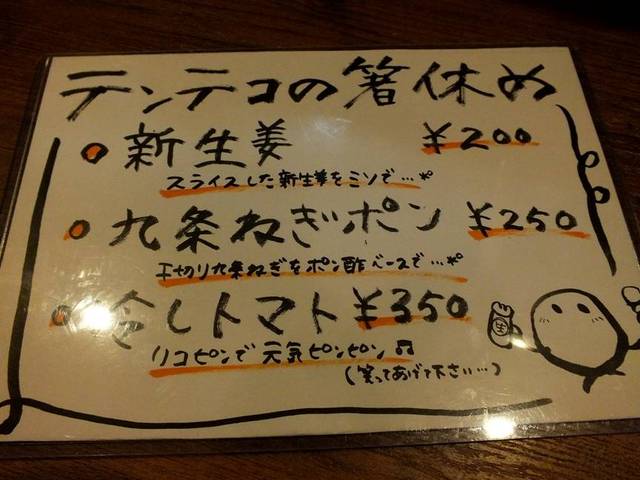 テンテコの箸休め
新生姜 ¥200
スライスした新生姜をミソで…*
九条ねぎポン ¥250
千切り九条ねぎをポン酢ベースで…*
冷しトマト ¥350
リコピンで元気ピンピン♫
(笑ってあげて下さい…)
生